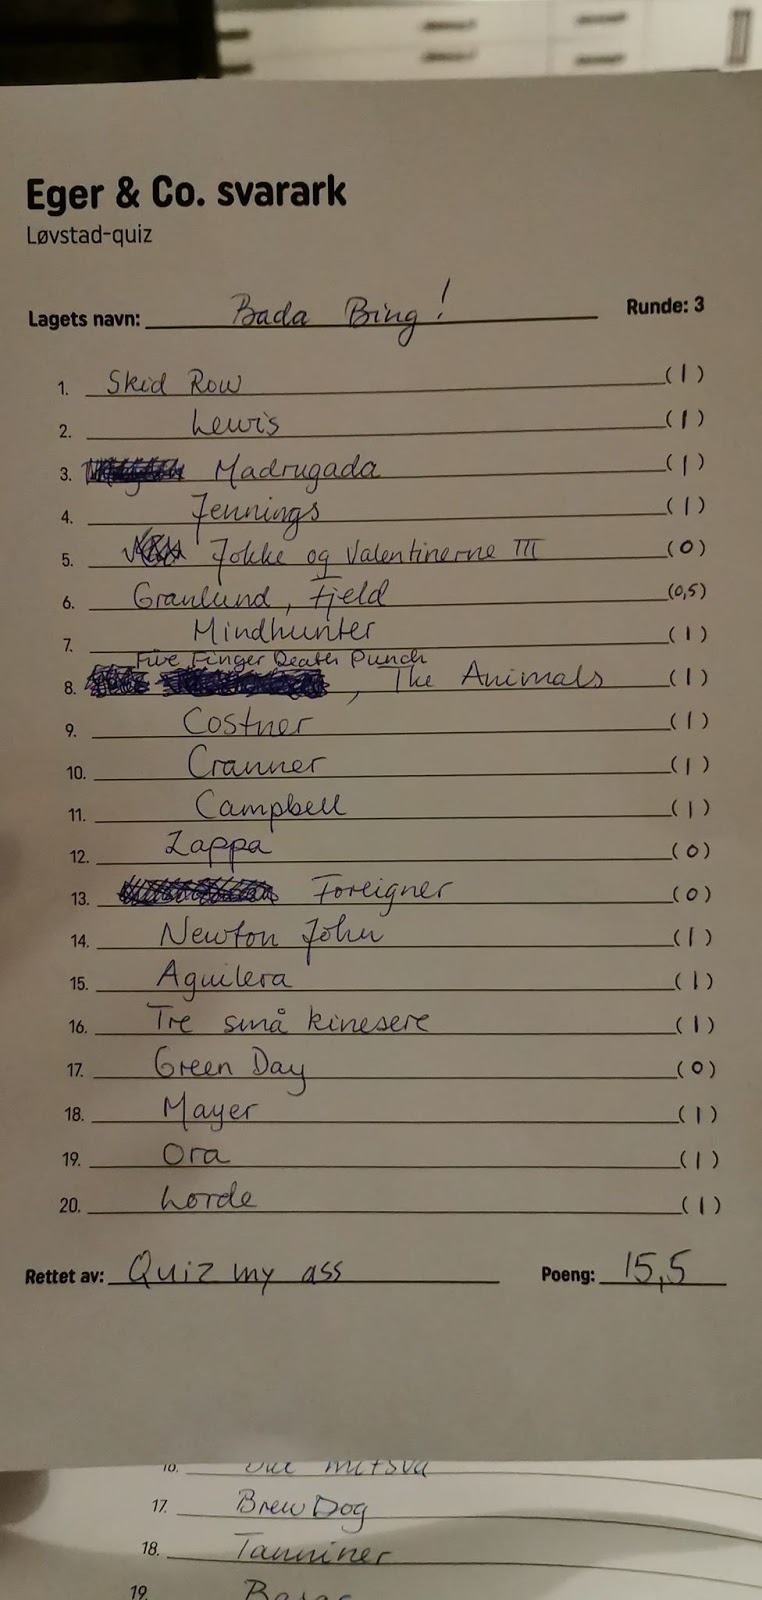 Eger & Co. svarark
Løvstad-quiz
Lagets navn: Bada Bing! Runde: 3
1. Skid Row (1)
2. Lewis (1)
3. Madrugada (1)
4. Jennings (1)
5. Jokke og Valentinerne III (0)
6. Granlund, Fjeld (0,5)
7. Mindhunter (1)
Five Finger Death Punch
8. , The Animals (1)
9. Costner (1)
10. Cranner (1)
11. Campbell (1)
12. Zappa (0)
13. Foreigner (0)
14. Newton John (1)
15. Aguilera (1)
16. Tre små kinesere (1)
17. Green Day (0)
18. Mayer (1)
19. Ora (1)
20. Lorde (1)
Rettet av: Quiz my ass Poeng: 15,5
16. mitsva
17. BrewDog
18. Tanniner
19.